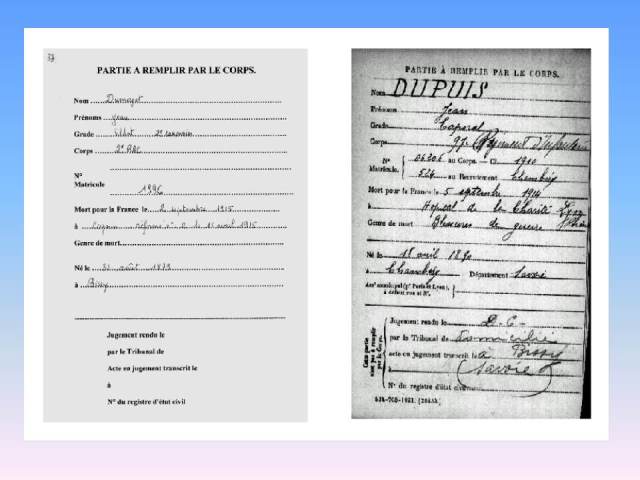 PARTIE A REMPLIR PAR LE CORPS.
Nom
Prénoms Jean
Grade 2e canonnier
Corps 2e RAC
N°
Matricule 1996
Mort pour la France le 2 septembre 1915
à réformé n° 2 le 15 avril 1915
Genre de mort
Né le 31 août 1873
à Bissy
Jugement rendu le
par le Tribunal de
Acte en jugement transcrit le
à
N° du registre d'état civil
PARTIE À REMPLIR PAR LE CORPS.
Nom DUPUIS
Prénoms Jean
Grade Caporal
Corps 97e Régiment d'Infanterie
N° 06206 au Corps. — Cl. 1910
Matricule. 524 au Recrutement Chambéry
Mort pour la France le 5 septembre 1914
à Hôpital de la Charité Lyon
Genre de mort Blessures de guerre
Né le 18 avril 1890
à Chambéry Département Savoie
Arrt municipal (pr Paris et Lyon), à défaut rue et N°.
Cette partie n'est pas à remplir par le Corps.
Jugement rendu le D.C.
par le Tribunal de domicilié
acte en jugement transcrit le à Bissy
à Savoie
N° du registre d'état civil